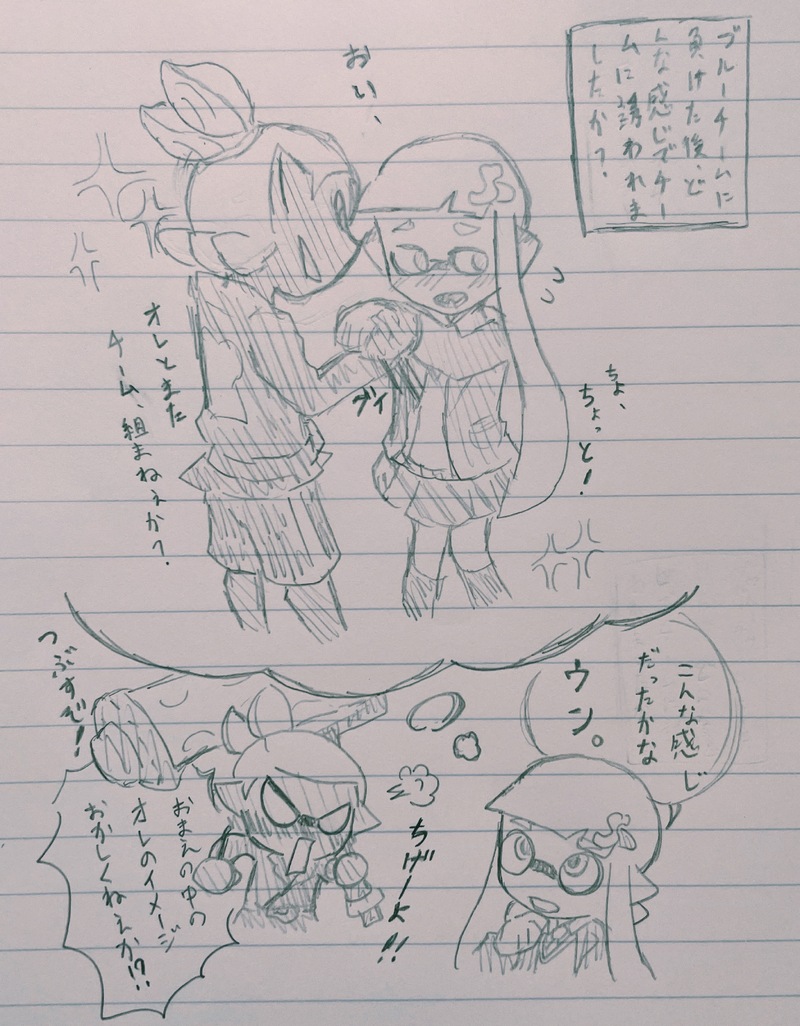 ブルーチームに
負けた後、ど
んな感じでチー
ムに誘われま
したか?
おい、
オレとまた
チーム、組まねぇか?
グイ
ちょ、
ちょっと!
こんな感じ
だったかな
ウン。
ちげーよ!!
つぶすぞ!
おまえの中の
オレのイメージ
おかしくねぇか!?